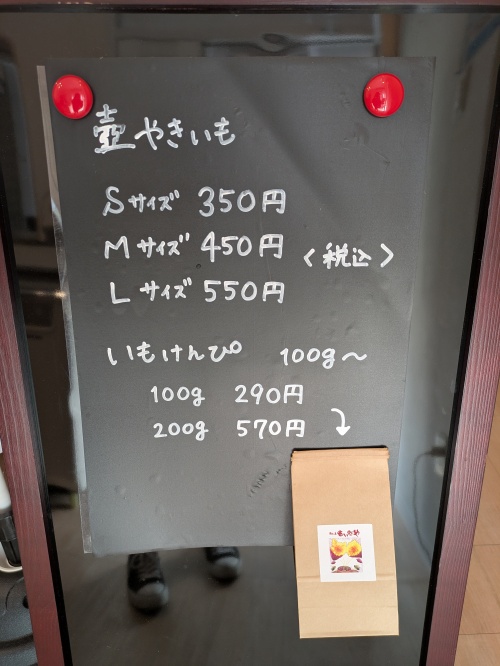 壺やきいも
Sサイズ 350円
Mサイズ 450円 <税込>
Lサイズ 550円
いもけんぴ 100g〜
100g 290円
200g 570円